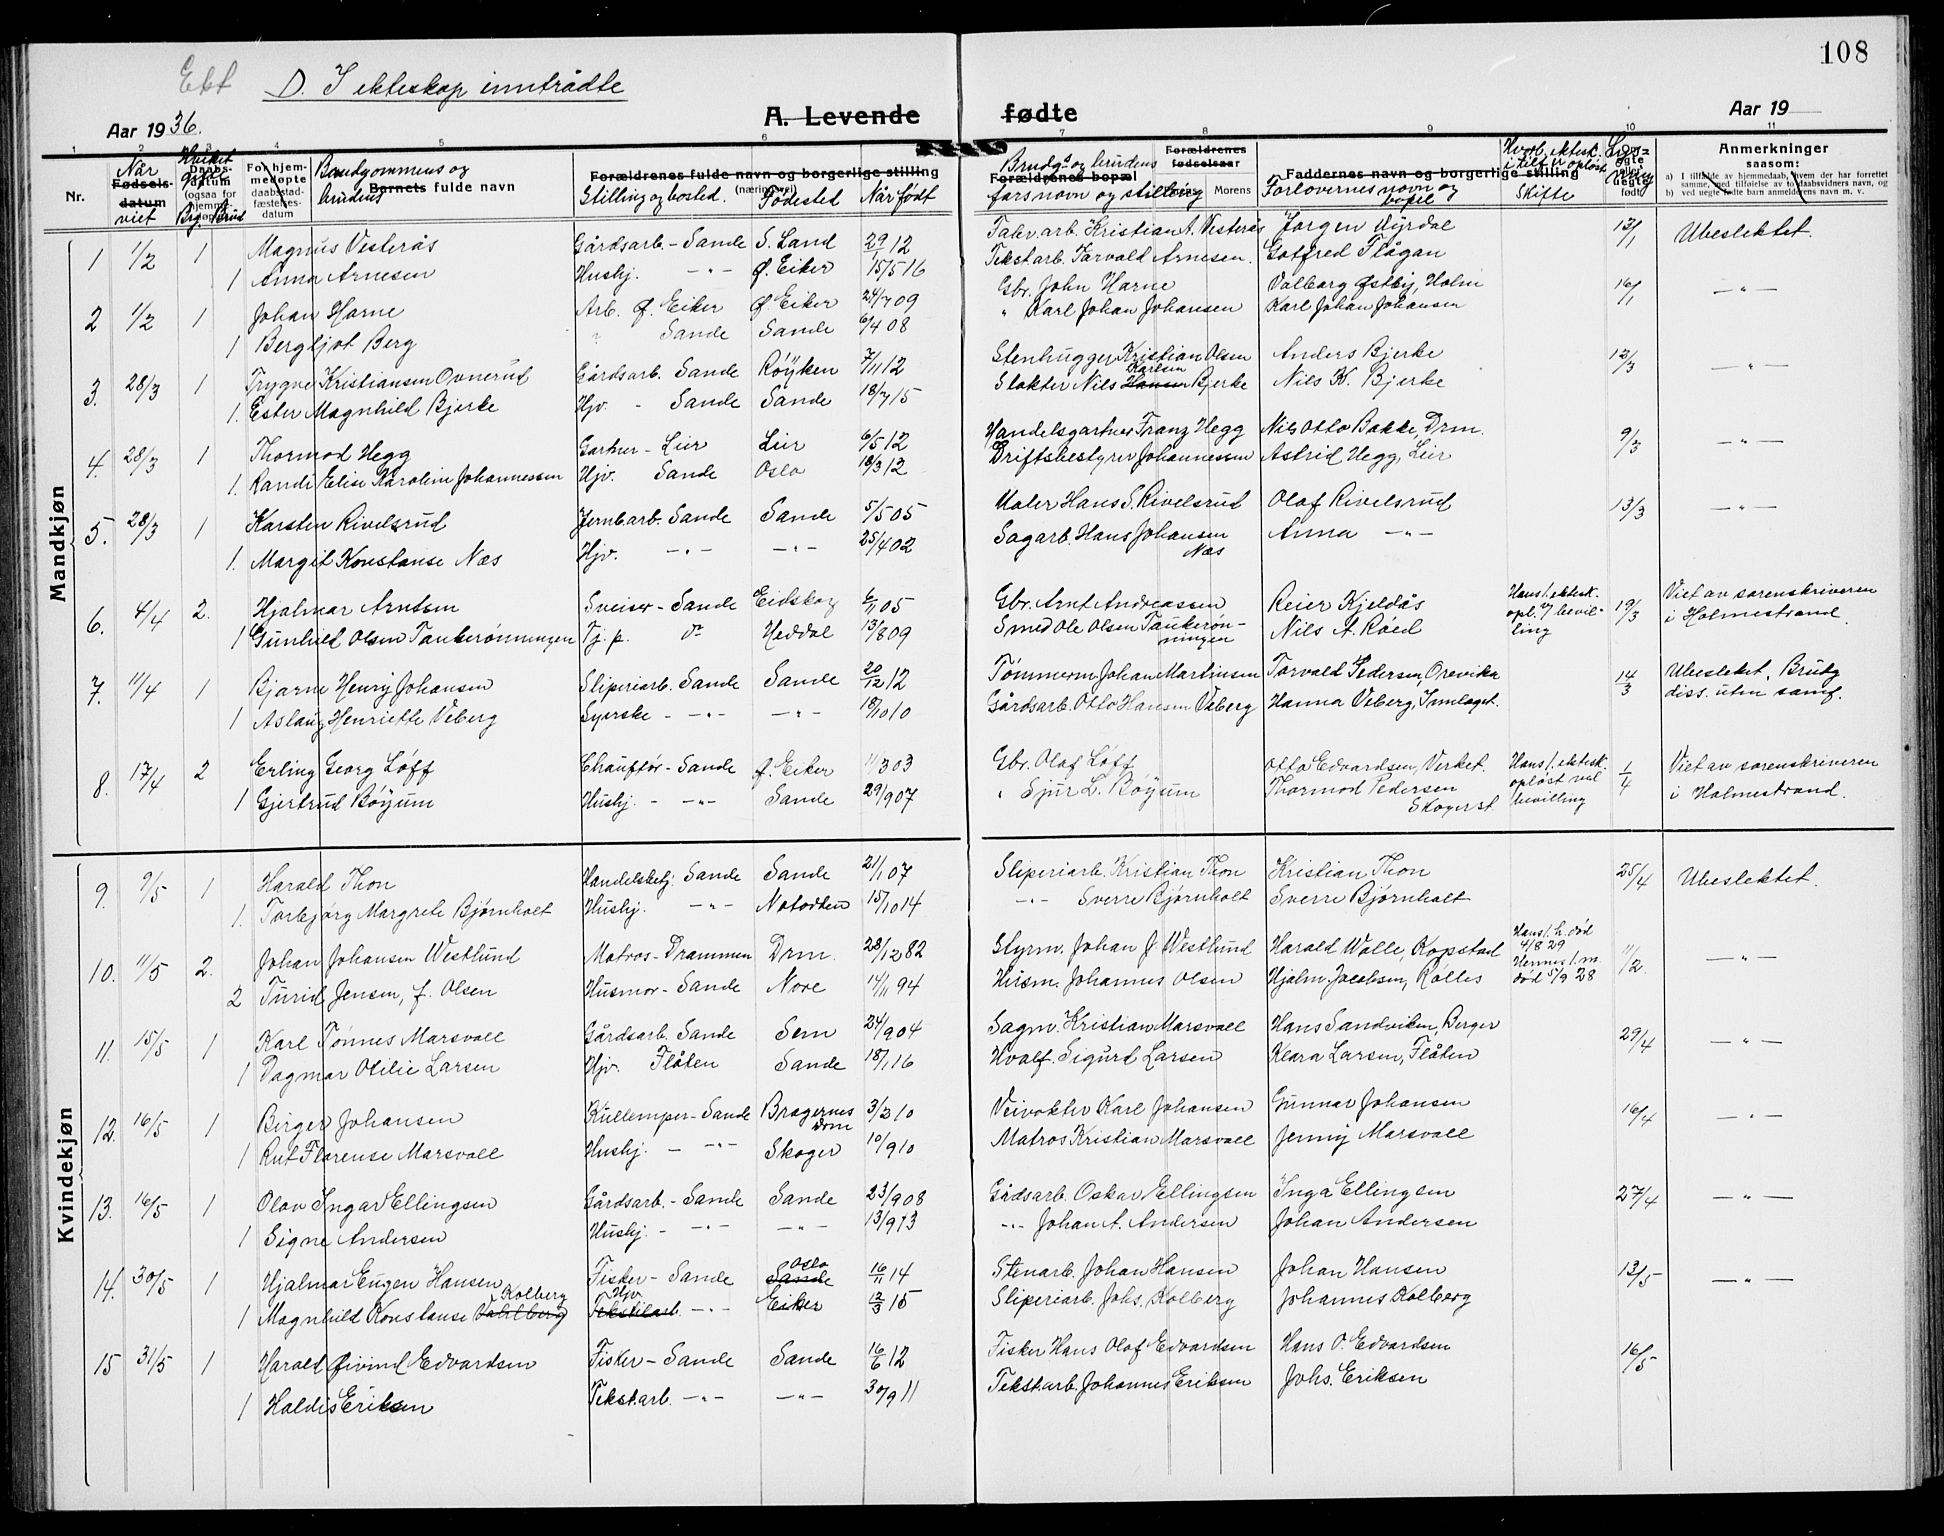 108
Ekt D. I ekteskap inntrådte
A. Levende fødte
Aar 1936.
Aar 19
1 2 3 4 5 6 7 8 9 10 11
Nr.
Når Fødsels-datum viet
Hvilket gifte Daabs-datum (ogsaa for hjemme-døpte) Brg. Brud
For hjem-medøpte daabsstad-fæstelses-datum
Brudgommens og brudens Barnets fulde navn
Forældrenes fulde navn og borgerlige stilling (næringsvei)
Stilling og bosted. Fødested Når født
Brudg.s og brudens Forældrenes bopæl farsnavn og stilling
Forældrenes fødselsaar Morens
Faddernes navn og borgerlige stilling Forlovernes navn og bopel
Hvorl. ektesk. i tilf. er opløst Skifte
Anmerkninger saasom:
a) I tilfælde av hjemmedaab, hvem der har forrettet samme, med tilføielse av to daabsvidners navn, og
b) ved uegte fødte barn anmelderens navn m. v.
Mandkjøn
1 1/2 1 Magnus Vesterås Gårdsarb. - Sande S. Land 29/1 12 Fabr.arb. Kristian A. Vesterås Jørgen Myrdal 13/1 Ubeslektet.
1 Anna Arnesen Hushj. -"- Ø. Eiker 15/5 16 Tekstarb. Torvald Arnesen. Gotfred Flågan
2 1/2 1 Johan Horne Arb. Ø. Eiker Ø. Eiker 24/7 09 Gbr. John Horne Valborg Østby, Holm 16/1 -"-
1 Bergljot Berg " Sande Sande 6/4 08 " Karl Johan Johansen Karl Johan Johansen
3. 28/3 1 Trygve Kristiansen Ovnerud Gårdsarb. Sande Røyken 7/11 12 Stenhugger Kristian Olsen Anders Bjerke 12/3 -"-
1. Ester Magnhild Bjerke Hjv. - Sande Sande 18/7 15 Slakter Nils Hansen Karlsen Bjerke Nils K. Bjerke
4. 28/3 1 Thormod Hegg Gartner - Lier Lier 6/5 12 Handelsgartner Franz Hegg Nils Otto Bakke, Drm. 9/3 -"-
1. Randi Elise Karoline Johannessen Hjv. Sande Oslo 18/3 12 Driftsbestyrer Johannessen Astrid Hegg, Lier
5. 28/3 1 Karsten Rivelsrud Jernb.arb. Sande Sande 5/5 05 Maler Hans S. Rivelsrud Olaf Rivelsrud 13/3 -"-
1. Margit Konstanse Næs Hjv. -"- -"- 25/4 02 Sagarb. Hans Johansen Næs Anna -"-
6. 4/4 2. Hjalmar Arntsen Sveiser - Sande Eidskog 6/11 05 Gbr. Arnt Andreassen Reier Kjeldås Hans 1. ektesk. opl. v/ bevilling 19/3 Viet av sorenskriveren i Holmestrand.
1 Gunhild Olsen Taukerønningen Tj.p. do Heddal 13/8 09 Smed Ole Olsen Taukerønningen Nils A. Røed
7. 11/4 1 Bjarne Henry Johansen Sliperiarb. Sande Sande 20/12 12 Tømmerm Johan Martinsen Torvald Pedersen, Orevika 14/3 Ubeslektet, Brudg diss. uten samf.
1 Aslaug Henriette Veberg Syerske -"- -"- 18/10 10 Gårdsarb. Otto Hansen Veberg Hanna Veberg, Innlaget.
8. 17/4 2 Erling Georg Løff Chauffør - Sande Ø. Eiker 11/3 03 Gbr. Olaf Løff Otto Edvardsen, Verket. Hans 1. ektesk. opløst ved bevilling 1/4 Viet av sorenskriveren i Holmestrand.
1 Gjertrud Bøyum Hushj. -"- Sande 29/9 07 " Sjur L. Bøyum Thormod Pedersen Skogerst.
Kvindekjøn
9. 9/5 1 Harald Thon Handelsbetj. Sande Sande 21/1 07 Sliperiarb. Kristian Thon Kristian Thon 25/4 Ubeslektet.
1. Torbjørg Margrete Bjørnholt Hushj. -"- Notodden 15/10 14 -"- Sverre Bjørnholt Sverre Bjørnholt
10. 11/5 2. Johan Johansen Westlund Matros - Drammen Drm. 28/12 82 Styrm. Johan J. Westlund Harald Walle Kopstad Hans 1. h. død 4/8 29 Hennes 1. m. død 5/9 28 11/2. -"-
2 Turid Jensen, f. Olsen Husmor - Sande Nore 14/11 94 Husm. Johannes Olsen Hjalm. Jacobsen, Rølles
11. 15/5 1 Karl Tønnes Marsvoll Gårdsarb. Sande Sem 24/9 04 Sagm. Kristian Marsvoll Hans Sandviken, Berger 29/4 -"-
1 Dagmar Otilie Larsen Hjv. Flåten Sande 18/1 16 Hvalf. Sigurd Larsen Klara Larsen, Flåten
12. 16/5 1 Birger Johansen Kullemper - Sande Bragernes Drm 3/3 10 Veivokter Karl Johansen Gunnar Johansen 16/4 -"-
1 Rut Florense Marsvoll Hushj. -"- Skoger 10/9 10 Matros Kristian Marsvoll Jenny Marsvoll
13. 16/5 1 Olav Ingar Ellingsen Gårdsarb. - Sande Sande 23/9 08 Gådsarb. Oskar Ellingsen Inga Ellingsen 27/4 -"-
1 Signe Andersen Hushj. -"- -"- 13/9 13 -"- Johan A. Andersen Johan Andersen
14. 30/5 1 Hjalmar Eugen Hansen Fisker - Sande Sande Oslo 16/11 14 Stenarb. Johan Hansen Johan Hansen 13/5 -"-
1 Magnhild Konstanse Vahlberg Kolberg Tekstilarb. Hjv -"- Eiker 12/3 15 Sliperiarb. Johs. Kolberg Johannes Kolberg
15 31/5 1 Harald Øivind Edvardsen Fisker - Sande Sande 16/6 12 Fisker Hans Olaf Edvardsen Hans O. Edvardsen 16/5
1 Haldis Eriksen Tekst.arb. -"- -"- 30/9 11 Tekst.arb. Johannes Eriksen Johs. Eriksen